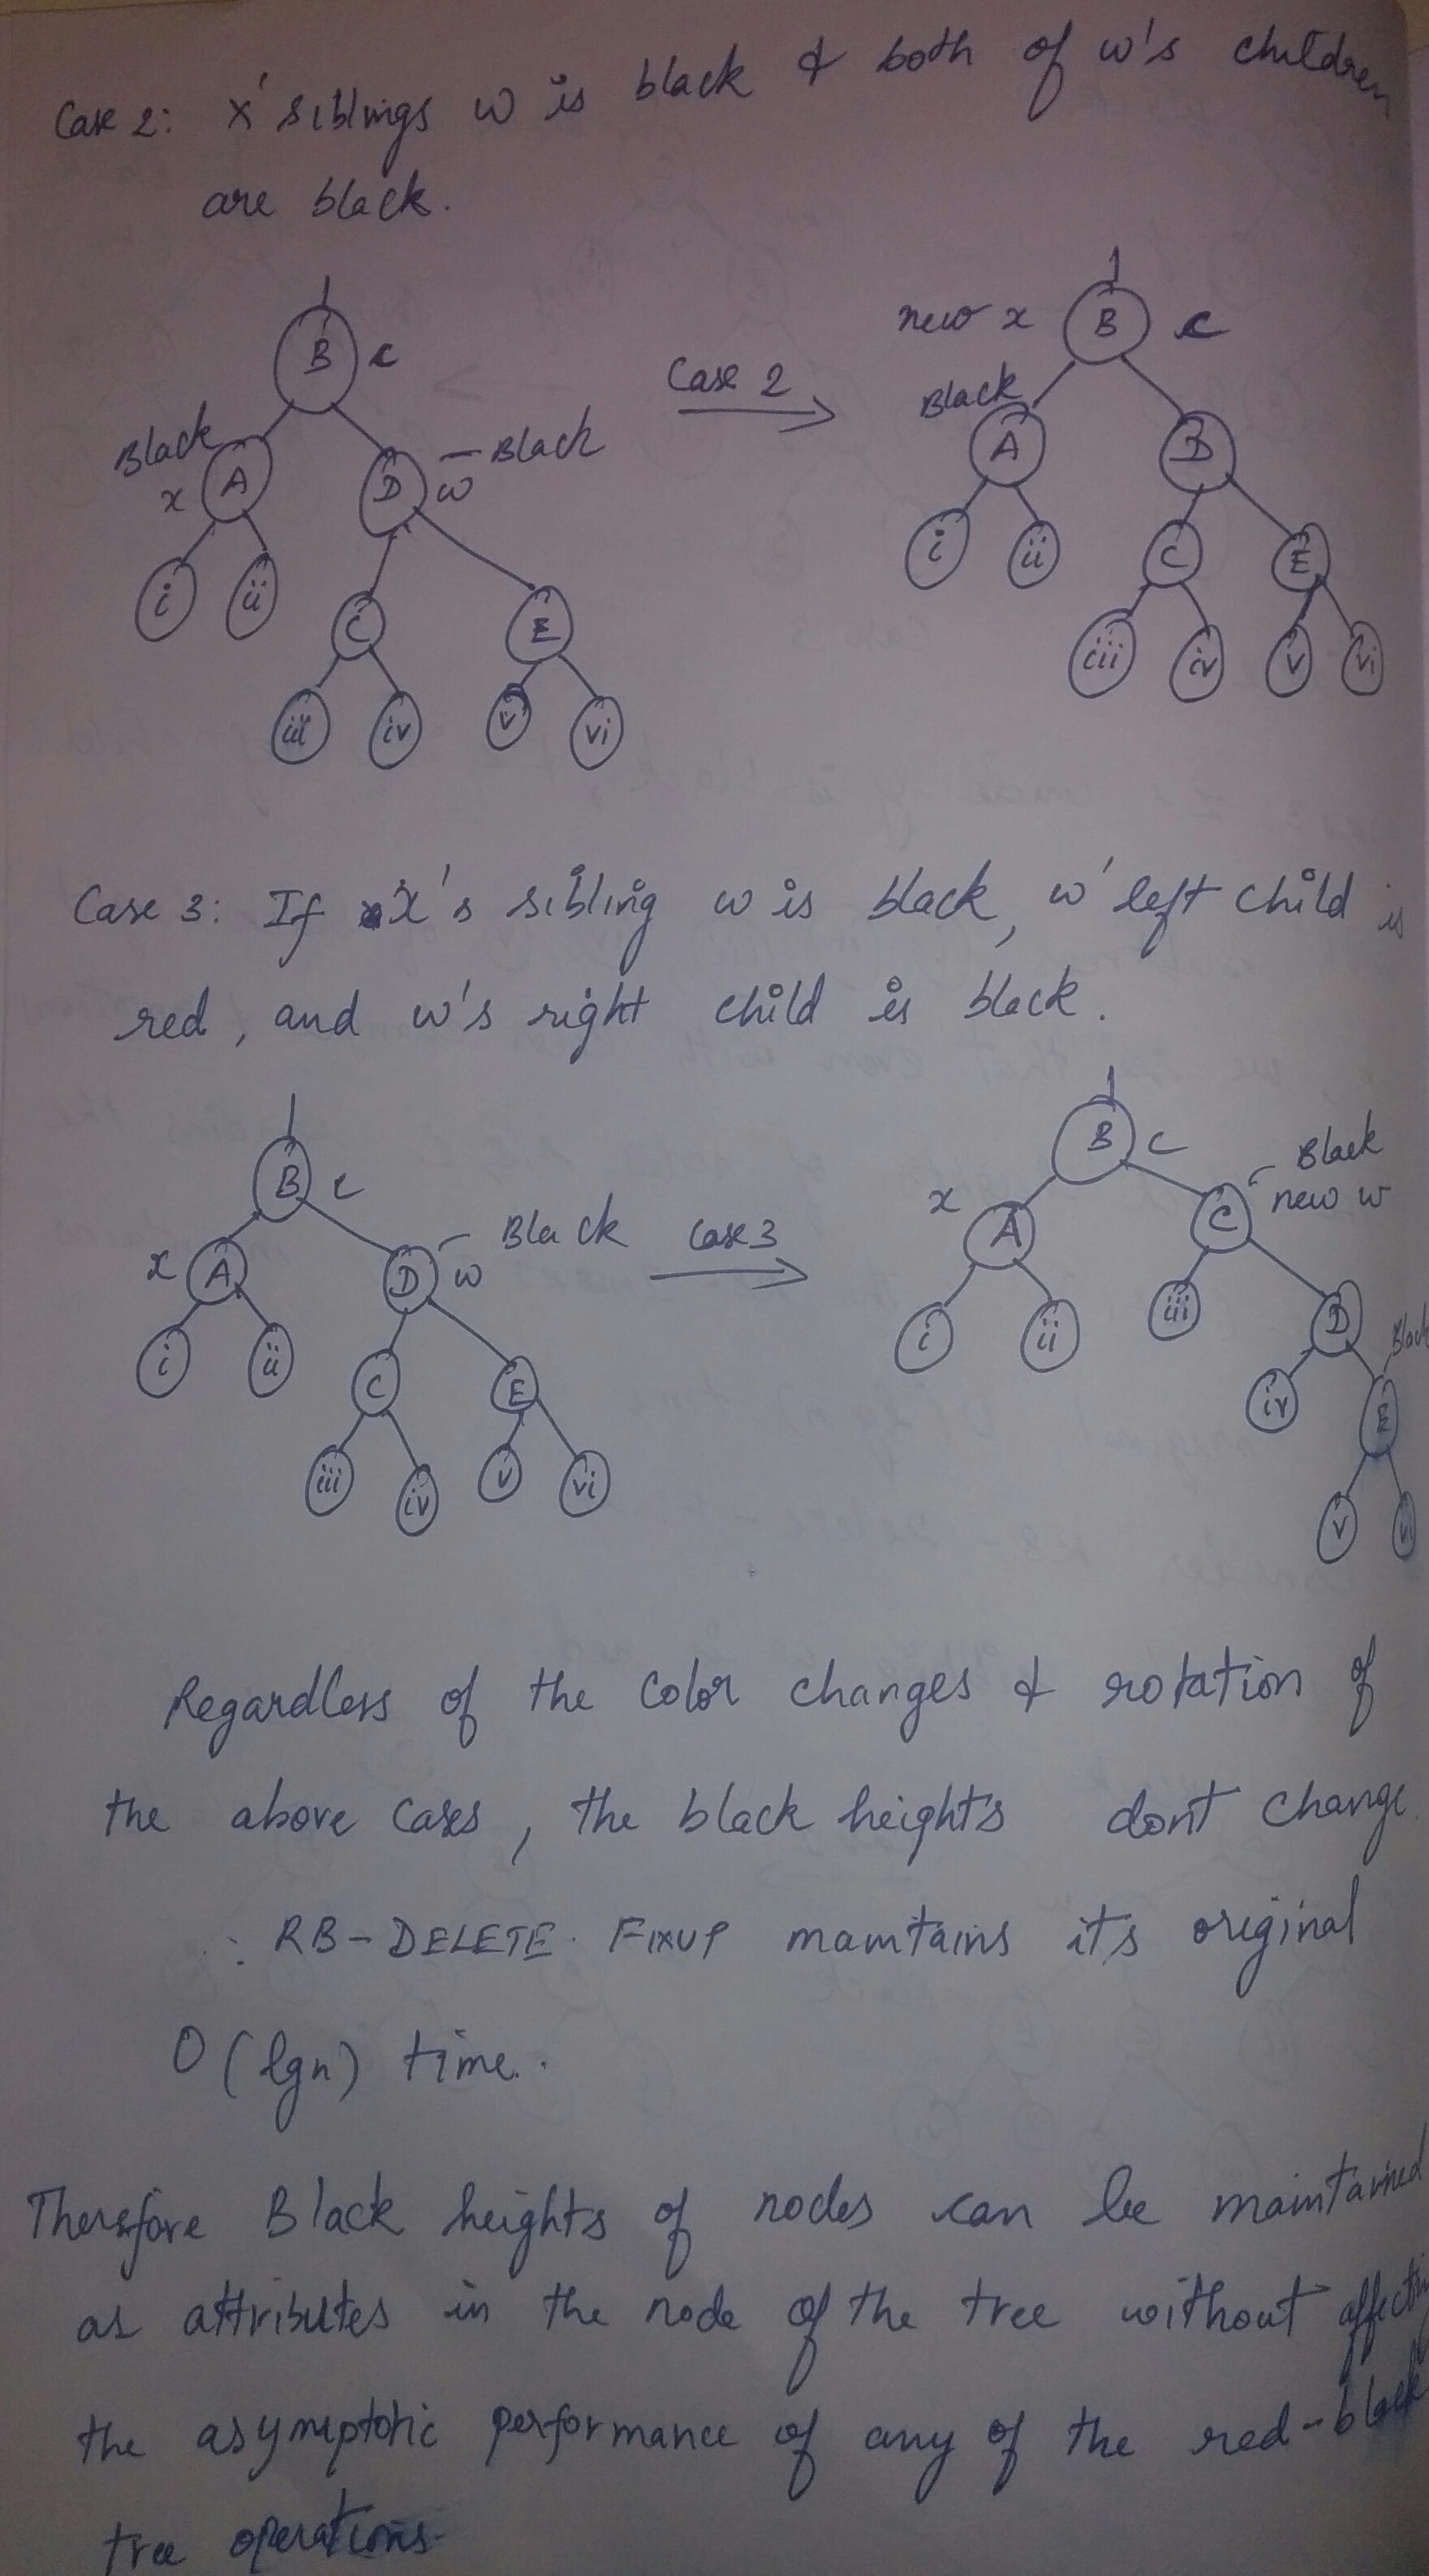 Case 2: x' siblings w is black & both of w's children
are black.
B c
Black
x A D w — Black
i ii C E
iii iv v vi
Case 2
new x B c
Black
A D
i ii C E
iii iv v vi
Case 3: If x's sibling w is black, w' left child is
red, and w's right child is black.
B c
x A D w Black
i ii C E
iii iv v vi
Case 3
B c Black
x A C new w
i ii iii D
iv E Black
v vi
Regardless of the color changes & rotation of
the above cases, the black heights dont change.
∴ RB-DELETE-FIXUP maintains its original
O(lgn) time.
Therefore Black heights of nodes can be maintained
as attributes in the node of the tree without affecting
the asymptotic performance of any of the red-black
tree operations.